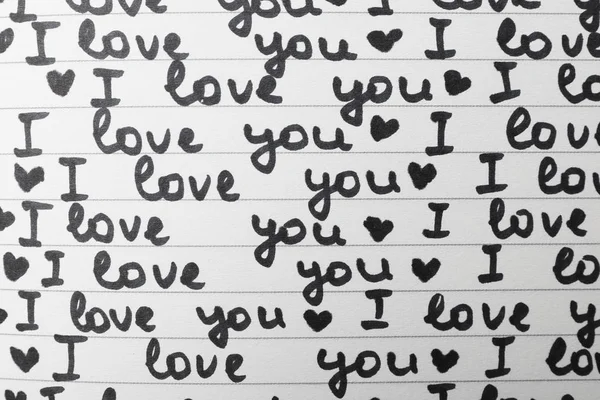 love you ♥ I love
♥ I love you ♥ I love
♥ I love you ♥ I
I love you ♥ I love
♥ I love you ♥ I love
♥ I love you ♥ I love
♥ I love you ♥ I
♥ I love you ♥ I love
♥ I love you ♥ I love